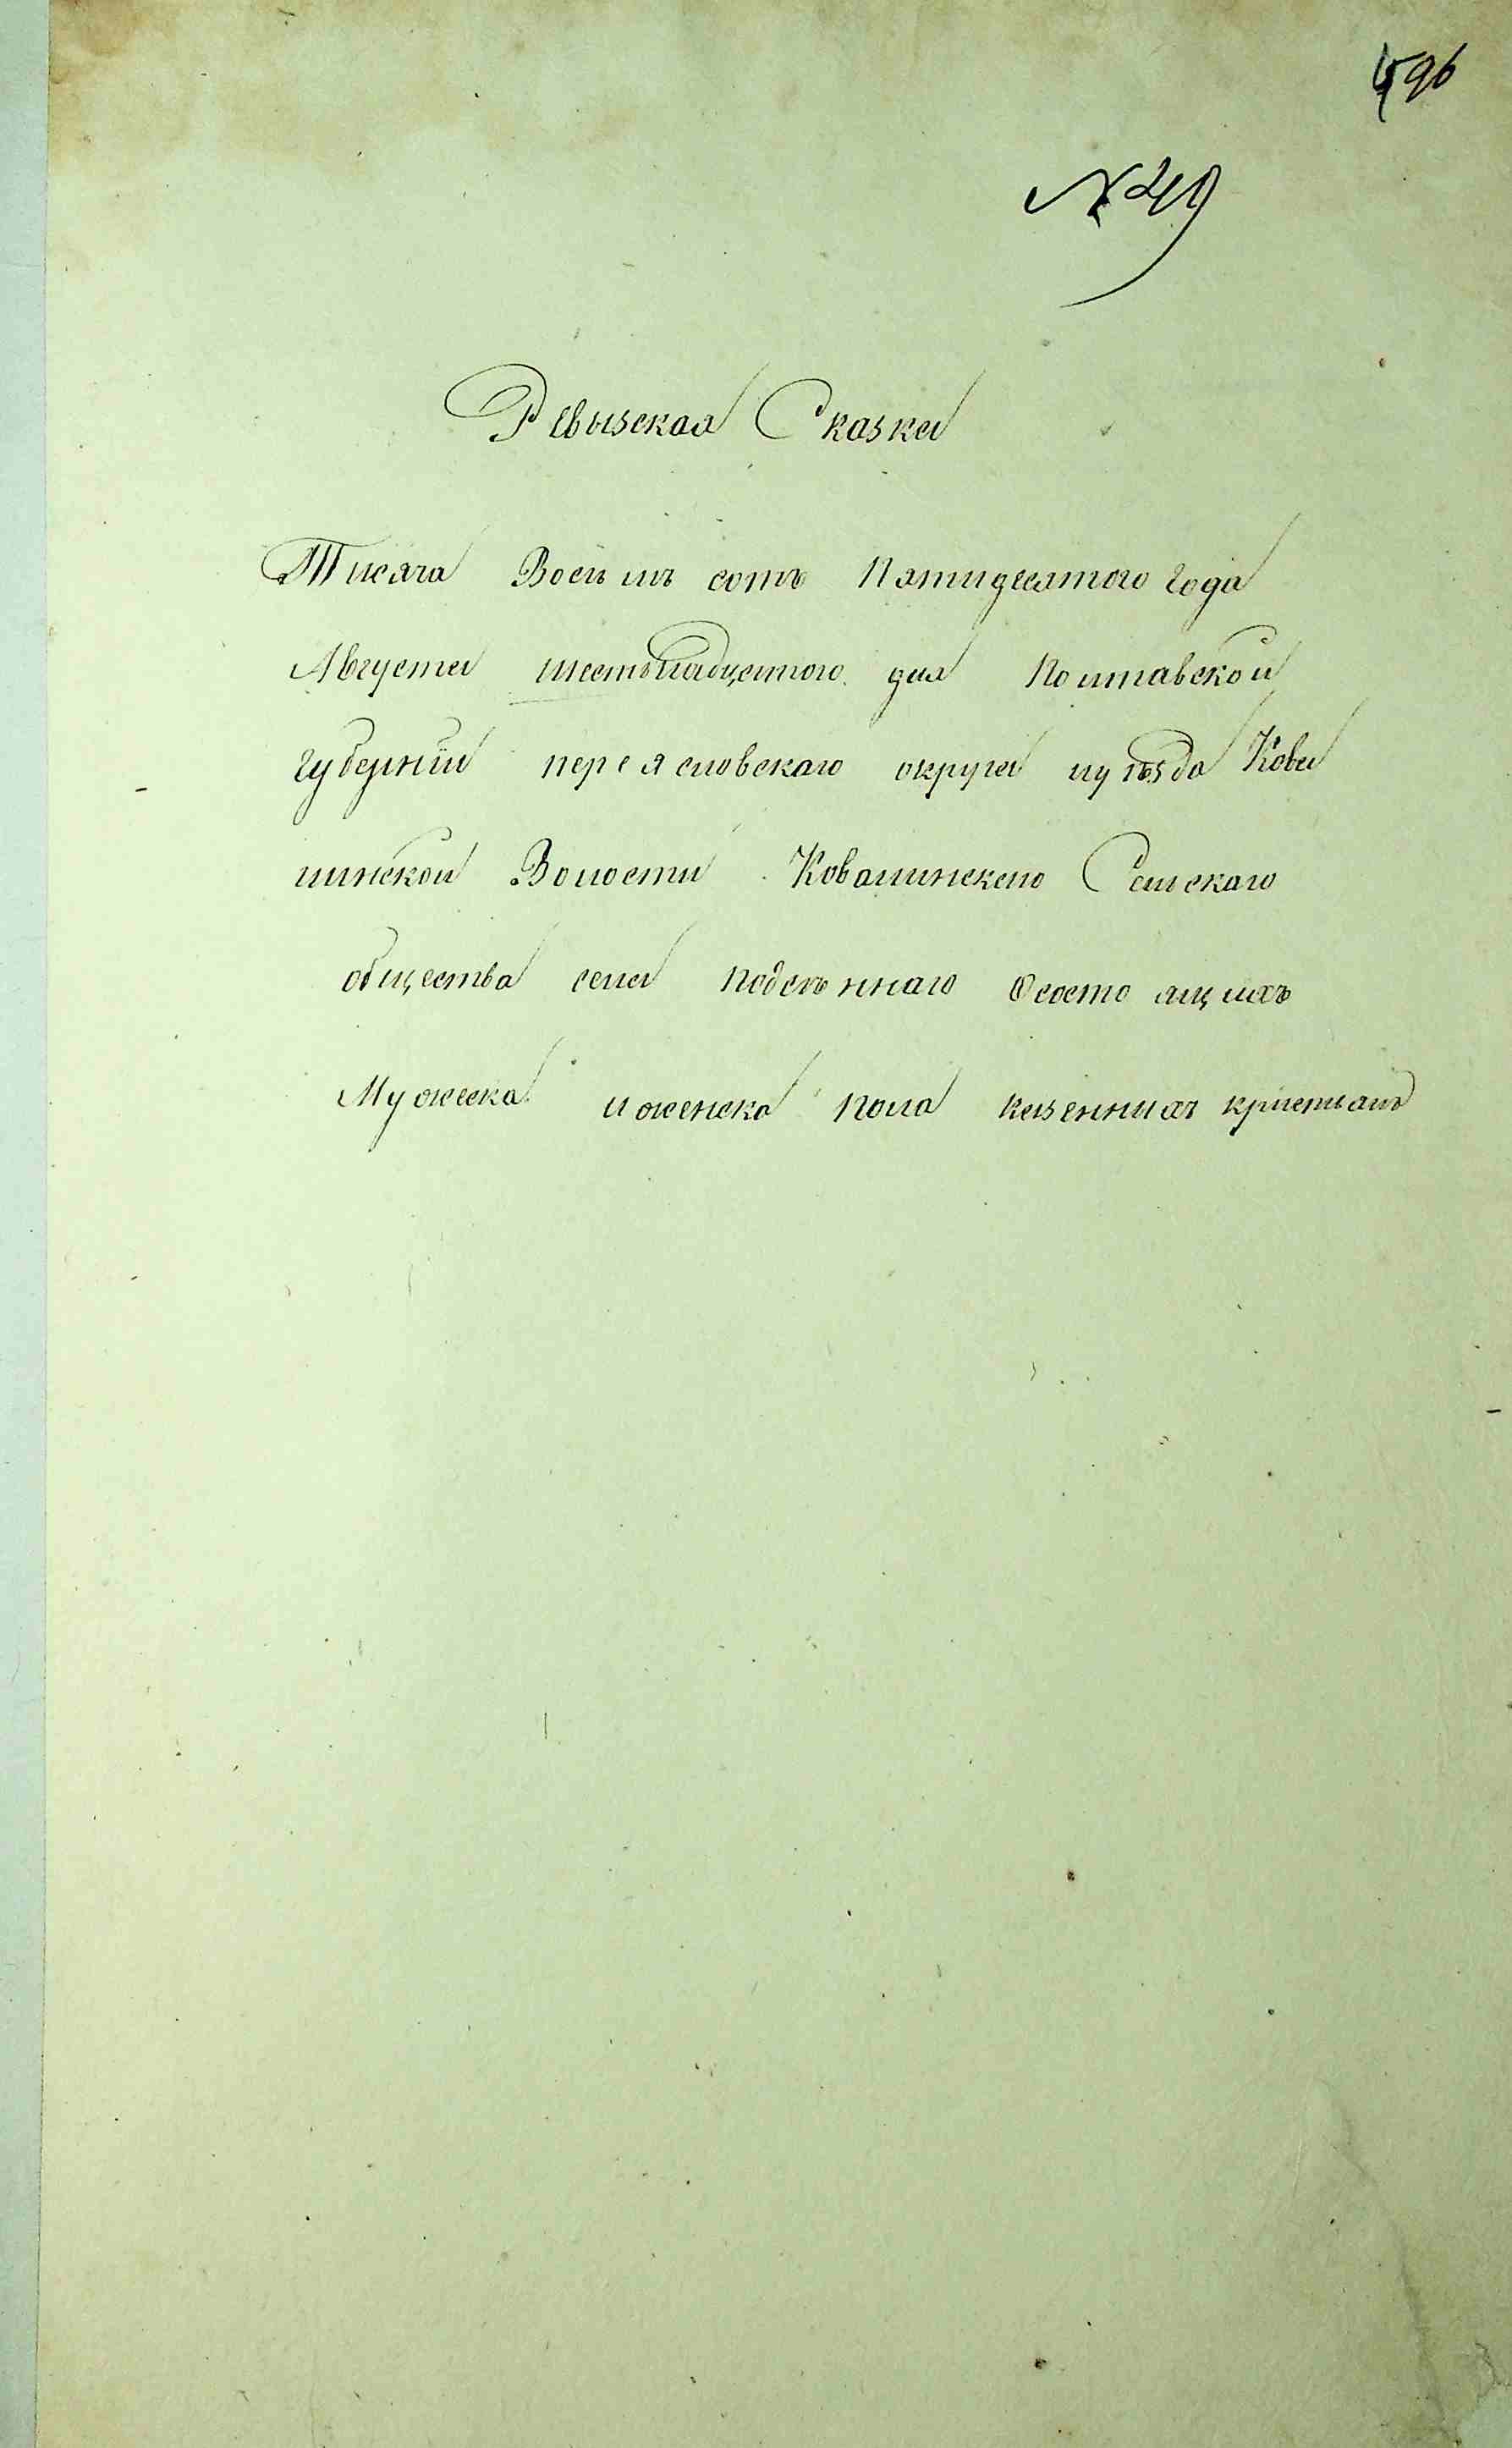 596
№ 49
Ревызская Сказка
Тисяча Восъмъ сотъ Пятидесятого года
Августа шестьнадцетого дня Полтавской
губернїи переясловскаго округа иуѣзда Кова
линской Волости Ковалинского Селскаго
общества села подсѣннаго Осостоящихъ
Мужеска иженска пола казеннихъ крістьянъ